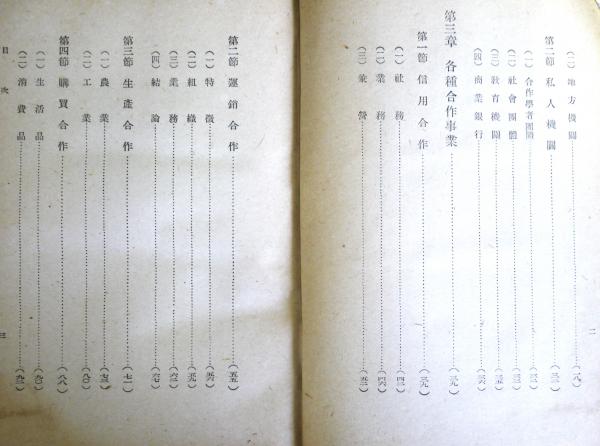 (二)地方機關………(一八)
第二節 私人機關………
(一)合作學者團體………
(二)社會團體………
(三)敎育機關………
(四)商業銀行………
第三章 各種合作事業………(三九)
第一節 信用合作………(三九)
(一)社務………(四二)
(二)業務………(四六)
(三)兼營………(五二)
二
第二節 運銷合作………(五五)
(一)特徵………(五六)
(二)組織………(五九)
(三)業務………(六二)
(四)結論………(六七)
第三節 生產合作………(七一)
(一)農業………(七三)
(二)工業………(八〇)
第四節 購買合作………(八八)
(一)生活品………(九〇)
(二)消費品………
目次
三